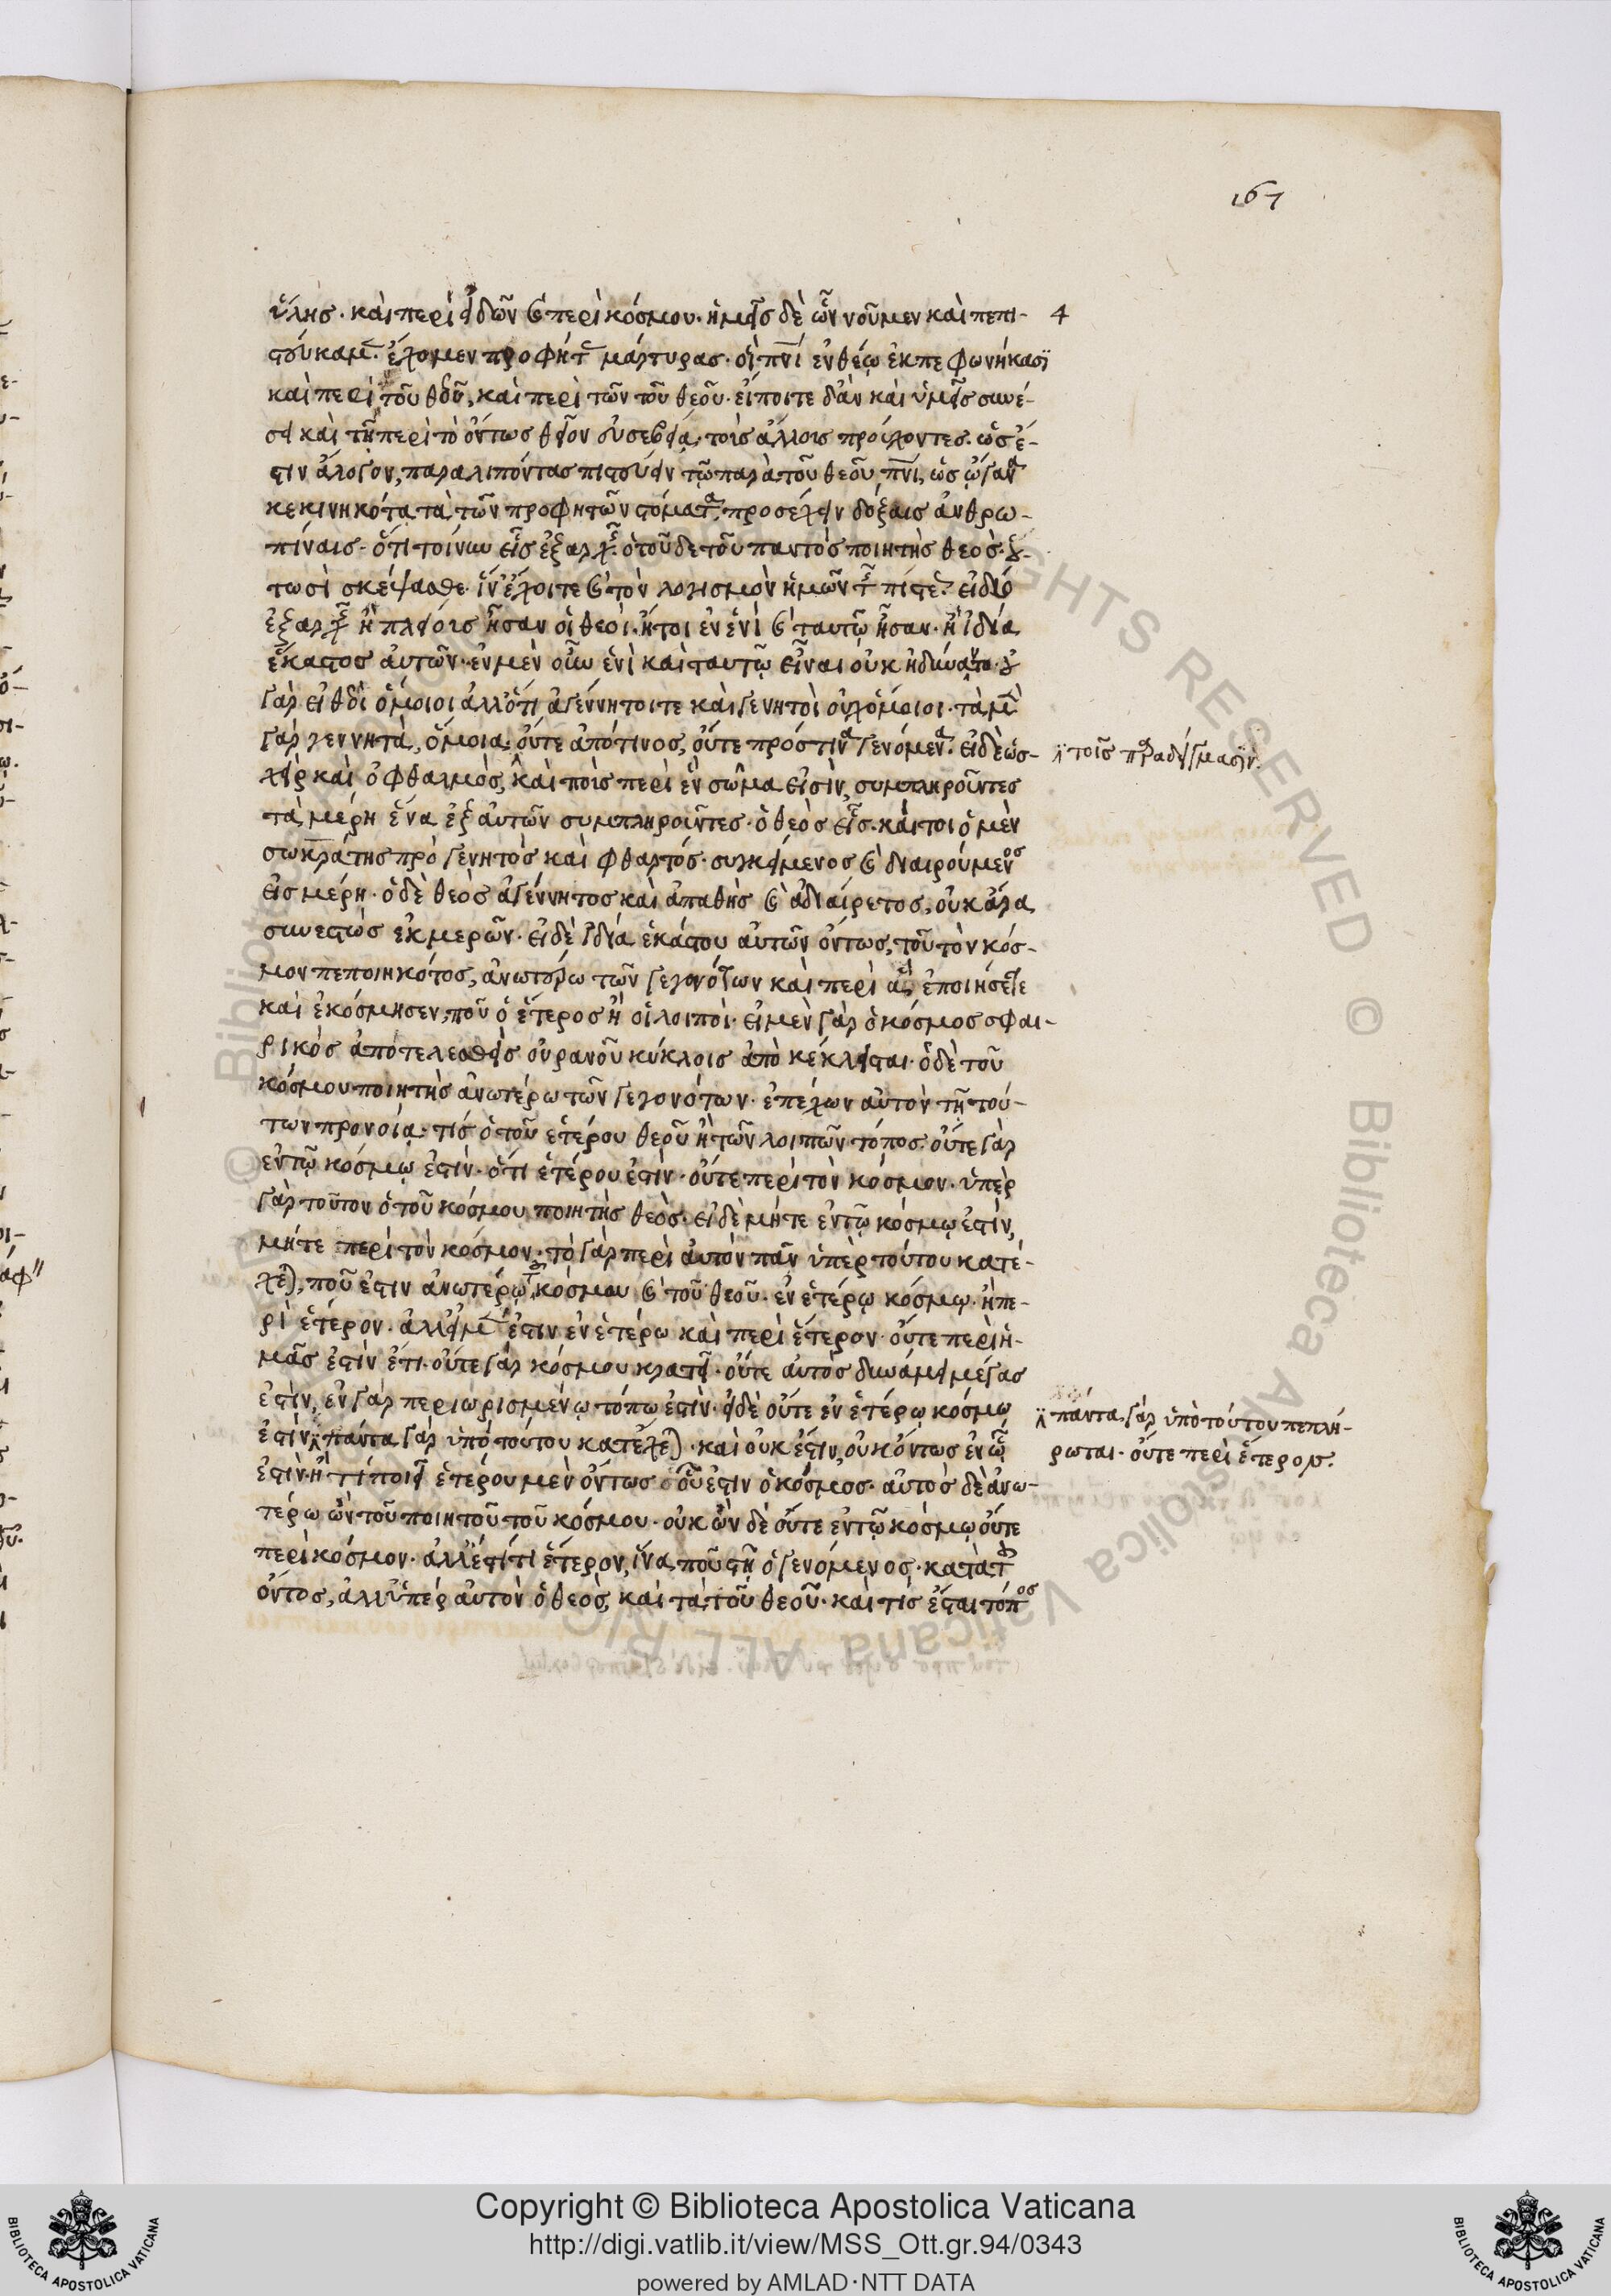 167
ὕλης· καὶ περὶ εἰδῶν καὶ περὶ κόσμου· ἡμεῖς δὲ ὧν νοοῦμεν καὶ πεπι- 4
στεύκαμεν· ἔχομεν προφήτας μάρτυρας· οἳ πνι ἐνθέω ἐκπεφωνήκασι
καὶ περὶ τοῦ θεοῦ, καὶ περὶ τῶν τοῦ θεοῦ· εἴποιτε δ' ἂν καὶ ὑμεῖς συνέ-
σει καὶ τῆ περὶ τὸ ὄντως θεῖον εὐσεβεία, τοὺς ἄλλους προέχοντες· ὡς ἔ-
στιν ἄλογον, παραλιπόντας πιστεύειν τῷ παρὰ τοῦ θεοῦ πνι, ὡς ὄργανα
κεκινηκότα τὰ τῶν προφητῶν στόματα, προσέχειν δόξαις ἀνθρω-
πίναις· ὅτι τοίνυν εἷς ἐξ ἀρχῆς ὁ τοῦδε τοῦ παντὸς ποιητὴς θεὸς· οὑ-
τωσὶ σκέψασθε· ἵν' ἔχοιτε καὶ τὸν λογισμὸν ἡμῶν τῆς πίστεως· εἰ δύο
ἐξ ἀρχῆς ἢ πλείους ἦσαν οἱ θεοί· ἤτοι ἐν ἑνὶ καὶ ταυτῷ ἦσαν· ἢ ἰδία
ἕκαστος αὐτῶν· ἐν μὲν οὖν ἑνὶ καὶ ταυτῷ εἶναι οὐκ ἠδύναντο· οὐ
γὰρ εἰ θεοὶ ὅμοιοι ἀλλ' ὅτι ἀγέννητοί τε καὶ γενητοὶ οὐχ ὅμοιοι· τὰ μὲν
γὰρ γεννητὰ, ὅμοια· οὔτε ἀπό τινος, οὔτε πρός τινα γενόμενα· εἰ δὲ ὡς
τοῖς παραδείγμασιν·
χεὶρ καὶ ὀφθαλμὸς, καὶ ποὺς περὶ ἓν σῶμα εἰσὶν, συμπληροῦντες
τὰ μέρη ἕνα ἐξ αὐτῶν συμπληροῦντες· ὁ θεὸς εἷς· καίτοι ὁ μὲν
σωκράτης πρὸ γενητὸς καὶ φθαρτός· συγκείμενος καὶ διαιρούμενος
εἰς μέρη· ὁ δὲ θεὸς ἀγέννητος καὶ ἀπαθὴς καὶ ἀδιαίρετος, οὐκ ἄρα
συνεστὼς ἐκ μερῶν· εἰ δὲ ἰδία ἑκάστου αὐτῶν ὄντως, τοῦ τὸν κόσ-
μον πεποιηκότος, ἀνωτέρω τῶν γεγονότων καὶ περὶ ἃ ἐποίησέ τε
καὶ ἐκόσμησεν, ποῦ ὁ ἕτερος ἢ οἱ λοιποί· εἰ μὲν γὰρ ὁ κόσμος σφαι-
ρικὸς ἀποτελεσθεὶς οὐρανοῦ κύκλοις ἀποκέκλεισται· ὁ δὲ τοῦ
κόσμου ποιητὴς ἀνωτέρω τῶν γεγονότων· ἐπέχων αὐτὸν τῇ τού-
των προνοία· τίς ὁ τοῦ ἑτέρου θεοῦ ἢ τῶν λοιπῶν τόπος· οὔτε γὰρ
ἐν τῷ κόσμῳ ἐστίν· ὅτι ἑτέρου ἐστίν· οὔτε περὶ τὸν κόσμον· ὑπὲρ
γὰρ τοῦτον ὁ τοῦ κόσμου ποιητὴς θεὸς· εἰ δὲ μήτε ἐν τῷ κόσμῳ ἐστίν,
μήτε περὶ τὸν κόσμον· τὸ γὰρ περὶ αὐτὸν πᾶν ὑπὲρ τούτου κατέ-
χεται, ποῦ ἐστιν ἀνωτέρω τοῦ κόσμου καὶ τοῦ θεοῦ· ἐν ἑτέρῳ κόσμῳ· ἢ πε-
ρὶ ἕτερον· ἀλλ' εἰ μέν ἐστιν ἐν ἑτέρω καὶ περὶ ἕτερον· οὔτε περὶ ἡ-
μᾶς ἐστὶν ἔτι· οὔτε γὰρ κόσμου κρατεῖ· οὔτε αὐτὸς δυνάμει μέγας
ἐστὶν, ἐν γὰρ περιωρισμένῳ τόπω ἐστὶν· εἰ δὲ οὔτε ἐν ἑτέρῳ κόσμω
ἐστὶν, πάντα γὰρ ὑπὸ τούτου κατέχεται· καὶ οὐκ ἔστιν, οὐκ ὄντως ἐν ᾧ
πάντα γὰρ ὑπὸ τούτου πεπλή-
ρωται· οὔτε περὶ ἕτερον·
ἐστὶν· ἢ τί ποιεῖ ἑτέρου μὲν ὄντως οὗ ἐστιν ὁ κόσμος· αὐτὸς δὲ ἀνω-
τέρω ὢν τοῦ ποιητοῦ τοῦ κόσμου· οὐκ ὢν δὲ οὔτε ἐν τῷ κόσμῳ οὔτε
περὶ κόσμον· ἀλλ' ἔστί τι ἕτερον, ἵνα ποῦ στῇ ὁ γενόμενος· κατὰ τοῦ
ὄντος, ἀλλ' ὑπὲρ αὐτὸν ὁ θεὸς, καὶ τὰ τοῦ θεοῦ· καὶ τίς ἔσται τόπος
Copyright © Biblioteca Apostolica Vaticana
http://digi.vatlib.it/view/MSS_Ott.gr.94/0343
powered by AMLAD·NTT DATA
BIBLIOTECA APOSTOLICA VATICANA
BIBLIOTECA APOSTOLICA VATICANA
© Biblioteca Apostolica Vaticana ALL RIGHTS RESERVED